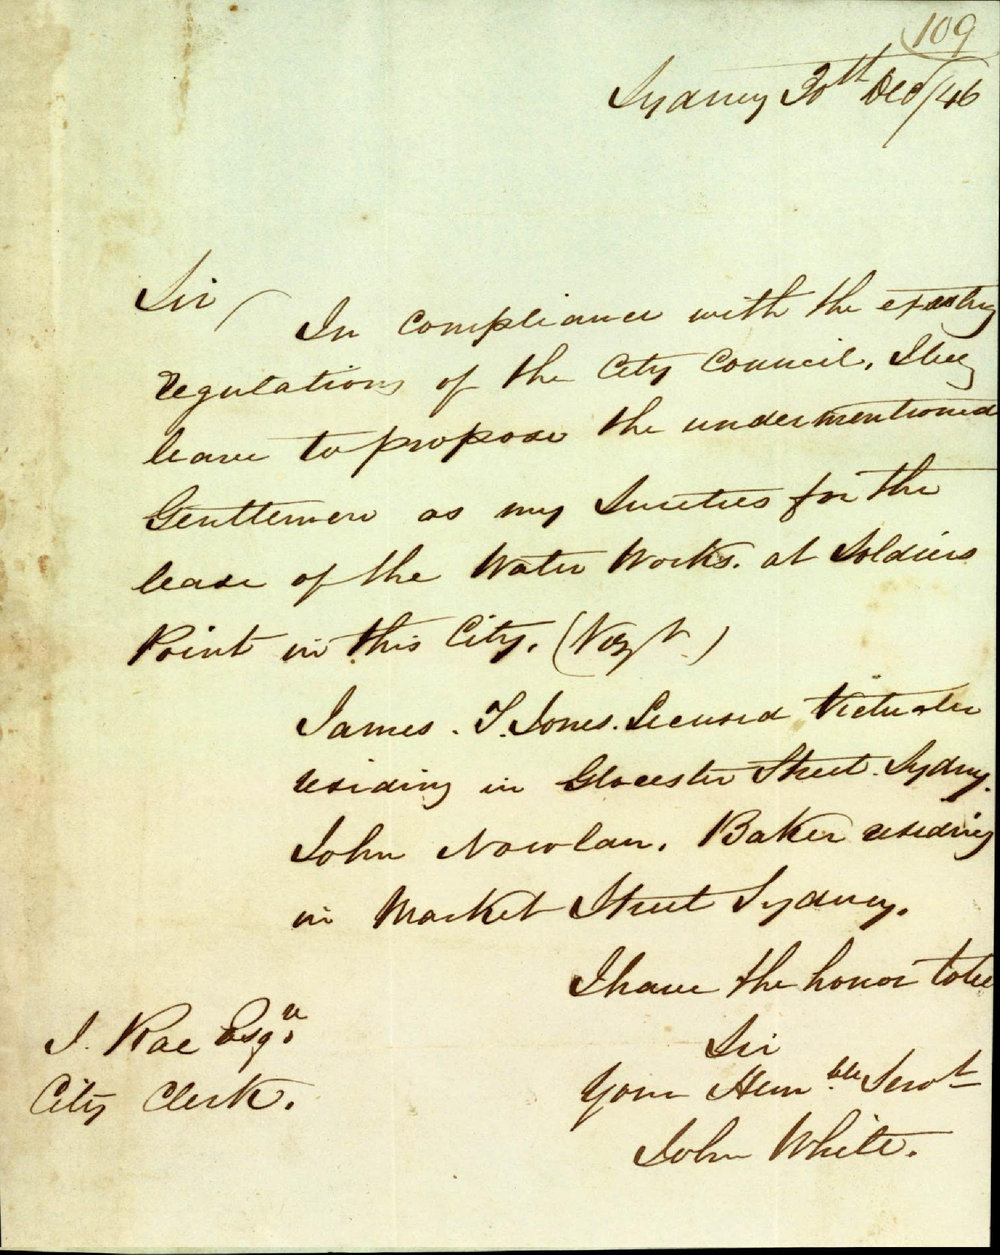 109
Sydney 30th Dec/46
Sir
In compliance with the existing
regulations of the City Council, I beg
leave to propose the undermentioned
Gentlemen as my Sureties for the
lease of the Water Works. at Soldiers
Point in this City. (Vozt.)
James. T. Jones. Licensed Victualer
residing in Glocester Street. Sydny.
John Nowlan. Baker residing
in Market Street Sydney.
I have the honor to be
Sir
Your Humble Servt
John White.
J. Rae Esqre
City Clerk.